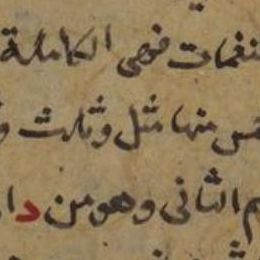 نغمات فهى الكاملة
منها مثل وثلث
الثانى وهو من د